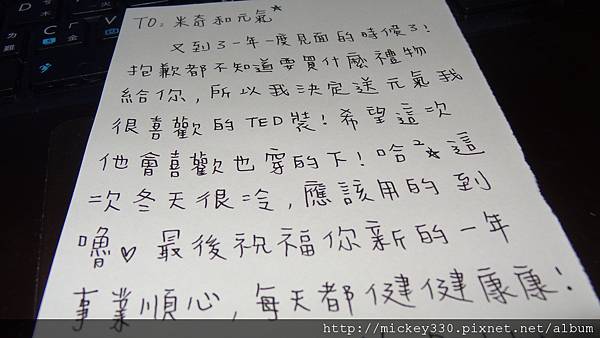 TO: 米奇和元氣☆
又到了一年一度見面的時候了!
抱歉都不知道要買什麼禮物
給你,所以我決定送元氣我
很喜歡的TED裝!希望這次
他會喜歡也穿的下!哈²☆這
次冬天很冷,應該用的到
嚕♡ 最後祝福你新的一年
事業順心,每天都健健康康!
http://mickey330.pixnet.net/album